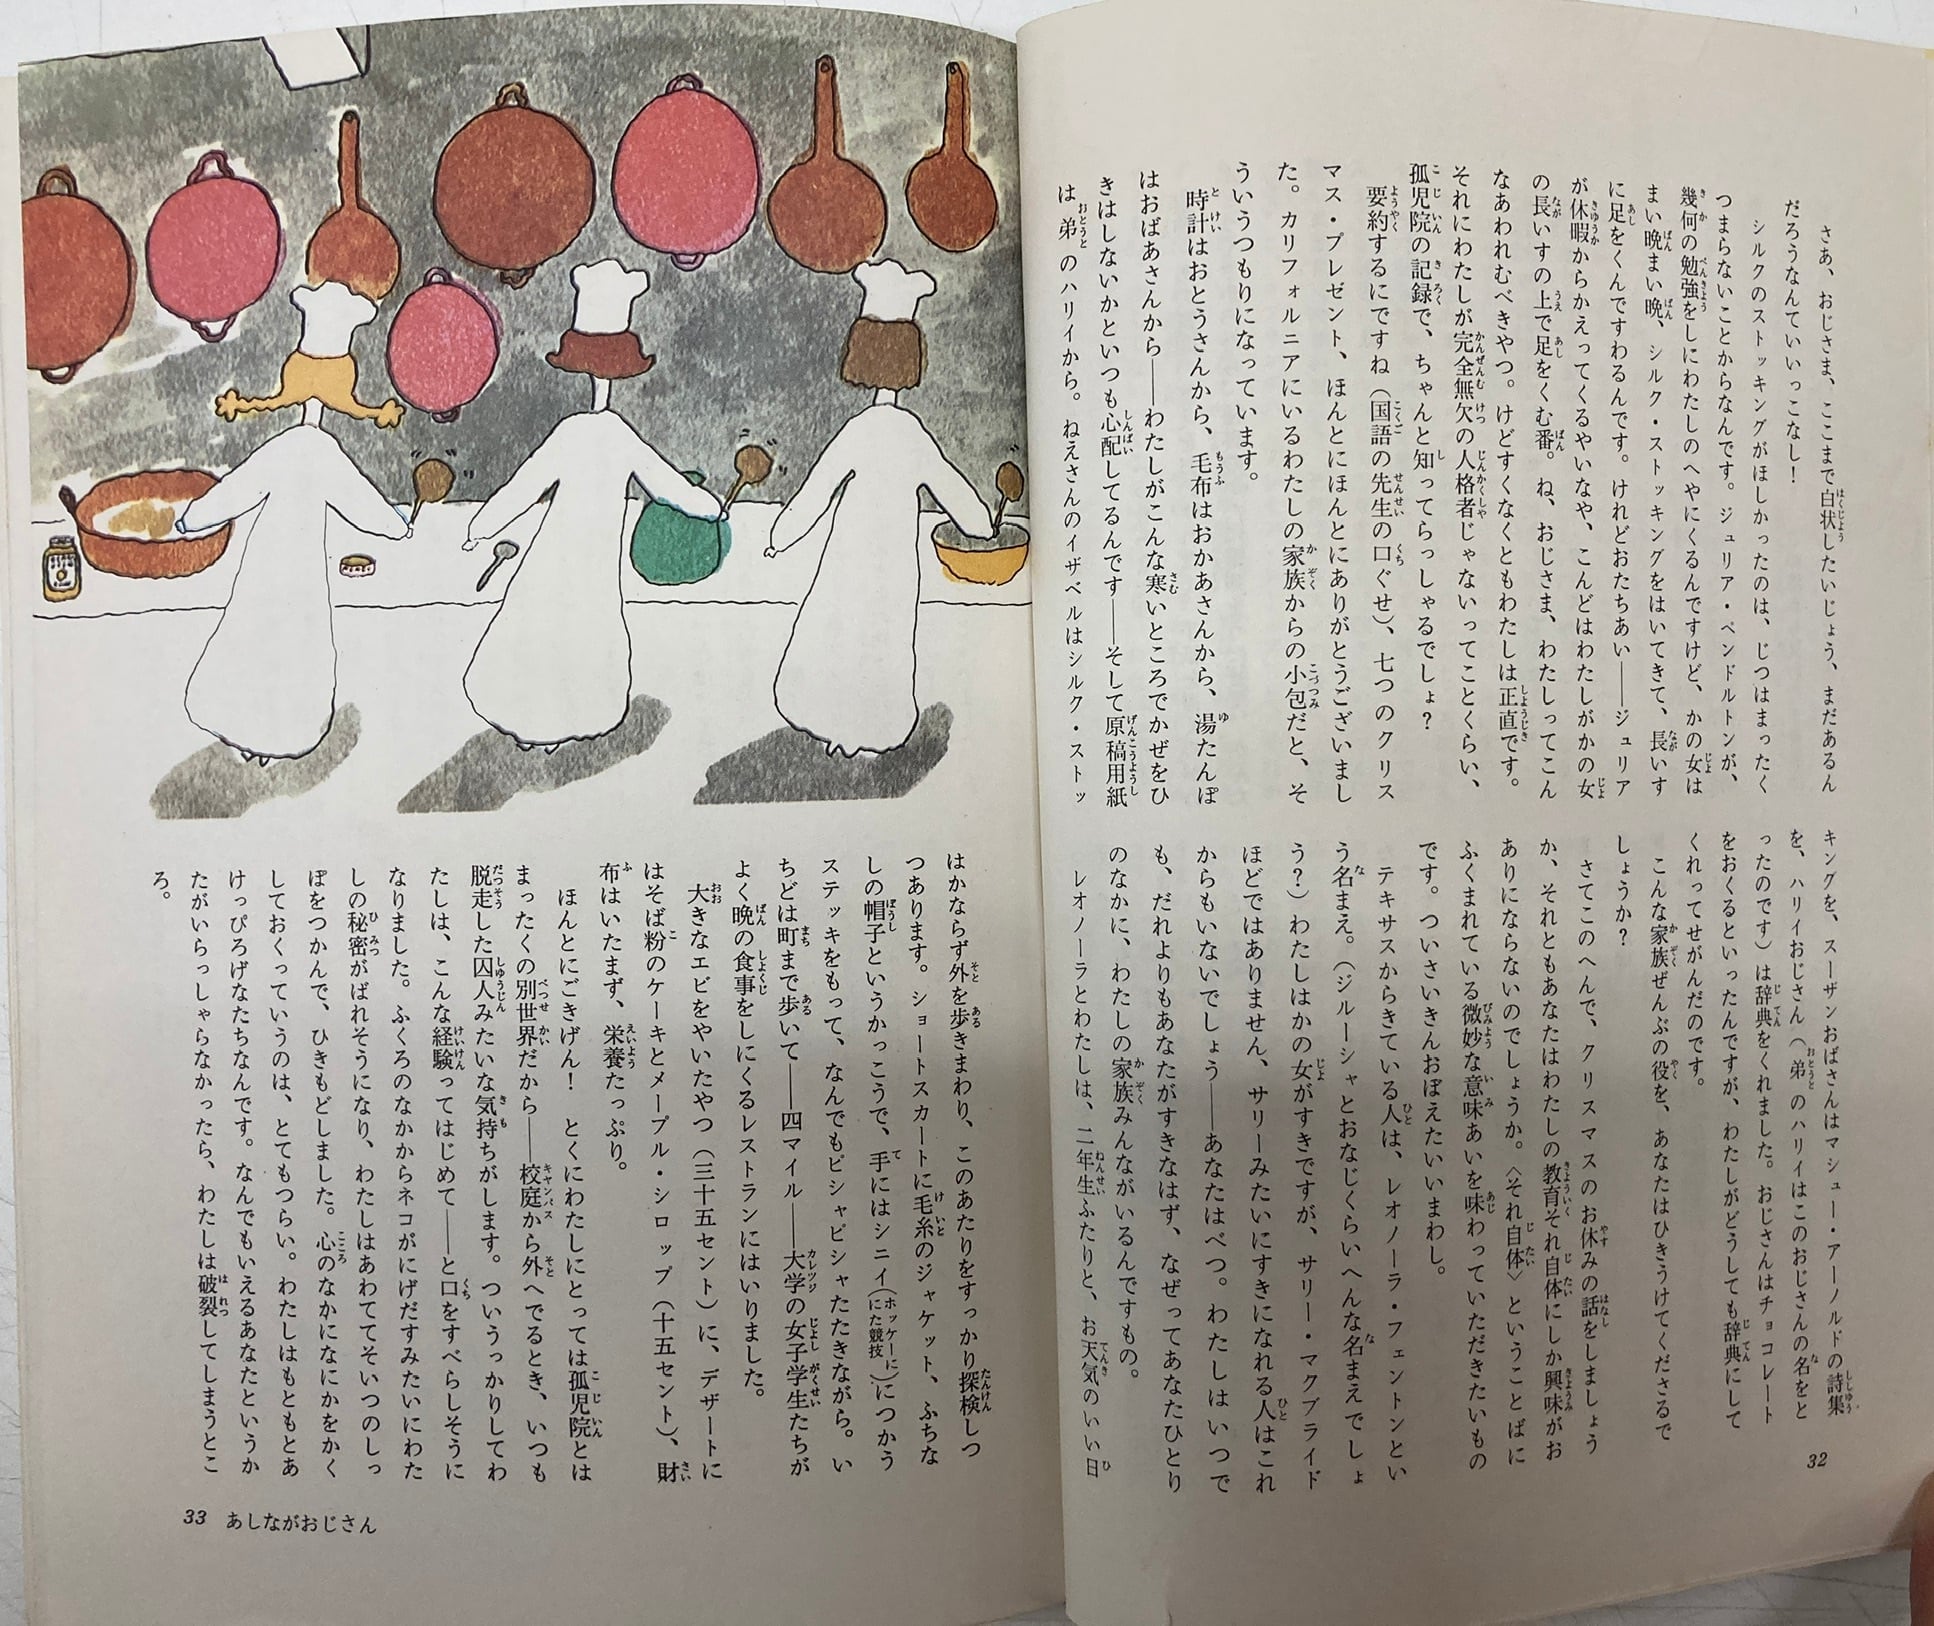 さあ、おじさま、ここまで白状したいじょう、まだあるん
だろうなんていいっこなし！
シルクのストッキングがほしかったのは、じつはまったく
つまらないことからなんです。ジュリア・ペンドルトンが、
幾何の勉強をしにわたしのへやにくるんですけど、かの女は
まい晩まい晩、シルク・ストッキングをはいてきて、長いす
に足をくんですわるんです。けれどおたちあい――ジュリア
が休暇からかえってくるやいなや、こんどはわたしがかの女
の長いすの上で足をくむ番。ね、おじさま、わたしってこん
なあわれむべきやつ。けどすくなくともわたしは正直です。
それにわたしが完全無欠の人格者じゃないってことくらい、
孤児院の記録で、ちゃんと知ってらっしゃるでしょ？
要約するにですね（国語の先生の口ぐせ）、七つのクリス
マス・プレゼント、ほんとにほんとにありがとうございまし
た。カリフォルニアにいるわたしの家族からの小包だと、そ
ういうつもりになっています。
時計はおとうさんから、毛布はおかあさんから、湯たんぽ
はおばあさんから――わたしがこんな寒いところでかぜをひ
きはしないかといつも心配してるんです――そして原稿用紙
は弟のハリイから。ねえさんのイザベルはシルク・ストッ
キングを、スーザンおばさんはマシュー・アーノルドの詩集
を、ハリイおじさん（弟のハリイはこのおじさんの名をと
ったのです）は辞典をくれました。おじさんはチョコレート
をおくるといったんですが、わたしがどうしても辞典にして
くれってせがんだのです。
こんな家族ぜんぶの役を、あなたはひきうけてくださるで
しょうか？
さてこのへんで、クリスマスのお休みの話をしましょう
か、それともあなたはわたしの教育それ自体にしか興味がお
ありにならないのでしょうか。〈それ自体〉ということばに
ふくまれている微妙な意味あいを味わっていただきたいもの
です。ついさいきんおぼえたいいまわし。
テキサスからきている人は、レオノーラ・フェントンとい
う名まえ。（ジルーシャとおなじくらいへんな名まえでしょ
う？）わたしはかの女がすきですが、サリー・マクブライド
ほどではありません、サリーみたいにすきになれる人はこれ
からもいないでしょう――あなたはべつ。わたしはいつで
も、だれよりもあなたがすきなはず、なぜってあなたひとり
のなかに、わたしの家族みんながいるんですもの。
レオノーラとわたしは、二年生ふたりと、お天気のいい日
32
はかならず外を歩きまわり、このあたりをすっかり探検しつ
つあります。ショートスカートに毛糸のジャケット、ふちな
しの帽子というかっこうで、手にはシニイ（ホッケーににた競技）につかう
ステッキをもって、なんでもピシャピシャたたきながら。い
ちどは町まで歩いて――四マイル――大学の女子学生たちが
よく晩の食事をしにくるレストランにはいりました。
大きなエビをやいたやつ（三十五セント）に、デザートに
はそば粉のケーキとメープル・シロップ（十五セント）、財
布はいたまず、栄養たっぷり。
ほんとにごきげん！　とくにわたしにとっては孤児院とは
まったくの別世界だから――校庭から外へでるとき、いつも
脱走した囚人みたいな気持ちがします。ついうっかりしてわ
たしは、こんな経験ってはじめて――と口をすべらしそうに
なりました。ふくろのなかからネコがにげだすみたいにわた
しの秘密がばれそうになり、わたしはあわててそいつのしっ
ぽをつかんで、ひきもどしました。心のなかになにかをかく
しておくっていうのは、とてもつらい。わたしはもともとあ
けっぴろげなたちなんです。なんでもいえるあなたというか
たがいらっしゃらなかったら、わたしは破裂してしまうとこ
ろ。
33 あしながおじさん